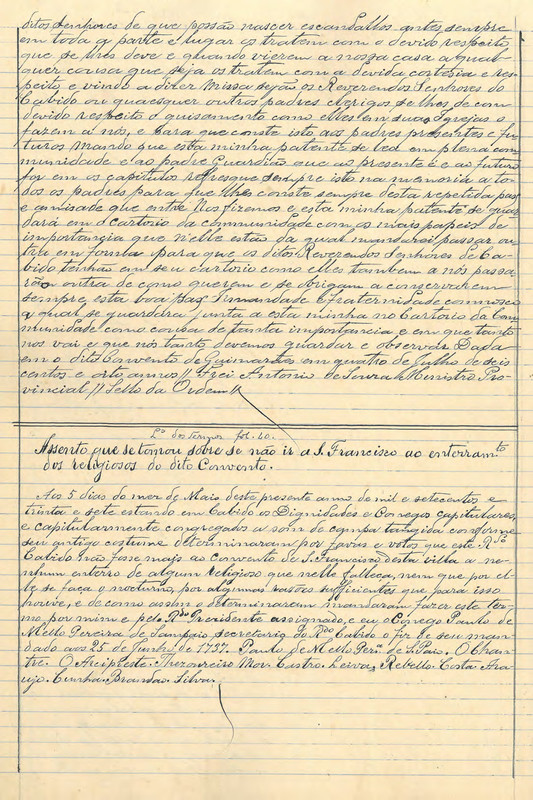 ditos Senhores de que possão nascer escandallos antes sempre
em toda a parte e lugar os tratem com o devido respeito
que se lhes deve e quando vierem a nossa casa a qual-
quer cousa que seja os tratem com a devida cortesia e res-
peito e vindo a dizer Missa sejão os Reverendos Senhores do
Cabido ou quaesquer outros padres clerigos se lhes de com
devido respeito o guisamento como elles em suas Igrejas o
fazem a nós, e para que conste isto aos padres presentes e fu-
turos mando que esta minha patente se lea em plena com
munidade e ao padre Guardião que ao presente é e ao futuro
for em os capitulos refresque sempre isto na memoria a to-
dos os padres para que lhes conste sempre desta repetida paz
e amisade que entre Nos fizemos e esta minha patente se guar
dará em o Cartorio da communidade com os mais papeis de
importancia que nelle estão da qual mandarei passar ou-
tra em forma para que os ditos Reverendos Senhores do Ca-
bido tenhão em seu cartorio como elles tambem a nós passa
rão outra de como querem e se obrigam a conservarem
sempre esta boa paz Irmandade e fraternidade comnosco
a qual se guardará junta a esta minha no Cartorio da Com
munidade como cousa de tanta importancia e em que tanto
nos vai e que nós tanto devemos guardar e observar Dada
em o dito Convento de Guimarães em quatro de Julho de seis
centos e oito annos // Frei Antonio de Souza Ministro Pro-
vincial // Sello da Ordem //
L.º dos termos fol. 40.
Assento que se tomou sobre se não ir a S. Francisco ao enterram.to
dos religiosos do dito Convento.
Aos 5 dias do mez de Maio deste presente anno de mil e setecentos e
trinta e sete estando em Cabido os Dignidades e Conegos capitulares,
e capitularmente congregados a som de campa tangida conforme
seu antigo costume determinaram por favas e votos que este R.do
Cabido não fosse mais ao convento de S. Francisco desta villa a ne-
nhum enterro de algum religioso que nelle falleça, nem que por el-
le se faça o nocturno, por algumas rasões sufficientes que para isso
houve, e de como assim o determinaram mandaram fazer este ter-
mo por mim e pelo R.do Presidente assignado, e eu o Conego Paulo de
Mello Pereira de Sampaio secretario do R.do Cabido o fiz de seu man
dado aos 25 de Junho de 1737. Paulo de Mello Per.ª de S. Paio. O Chan-
tre. O Arcipreste. Thezoureiro Mor. Castro. Leiva. Rebello. Costa. Ara-
ujo. Cunha. Brandão. Silva.